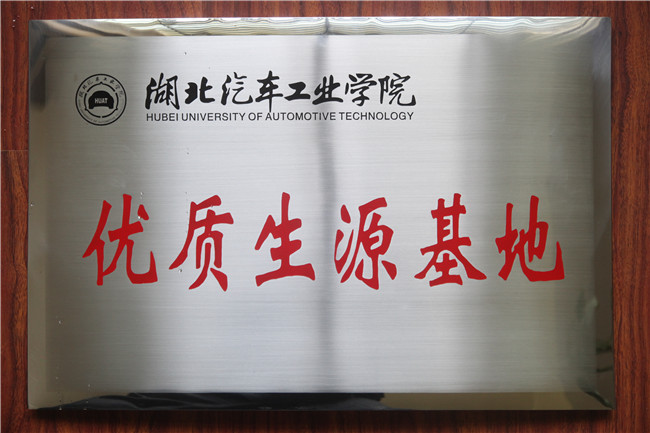 湖北汽车工业学院
HUBEI UNIVERSITY OF AUTOMOTIVE TECHNOLOGY
HUAT
优质生源基地